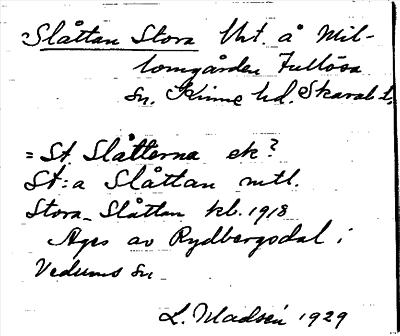 Slåttan Stora Urt. å Mil-
tomgården Fullösa
sn. Kinne hd. Skarab. l.
= St. Slåtterna ek?
St:a Slåttan mtl.
Stora Slåttan kb. 1918
Ages av Rydbergsdal i
Vedums sn
1929